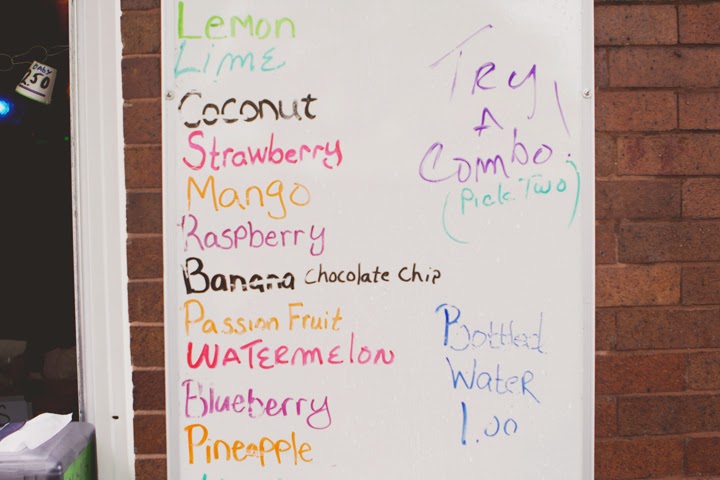 Lemon
Lime
Coconut
Strawberry
Mango
Raspberry
Banana Chocolate Chip
Passion Fruit
WATERMELON
Blueberry
Pineapple
Try
A
Combo
(Pick Two)
Bottled
Water
1.00
BABY
2.50